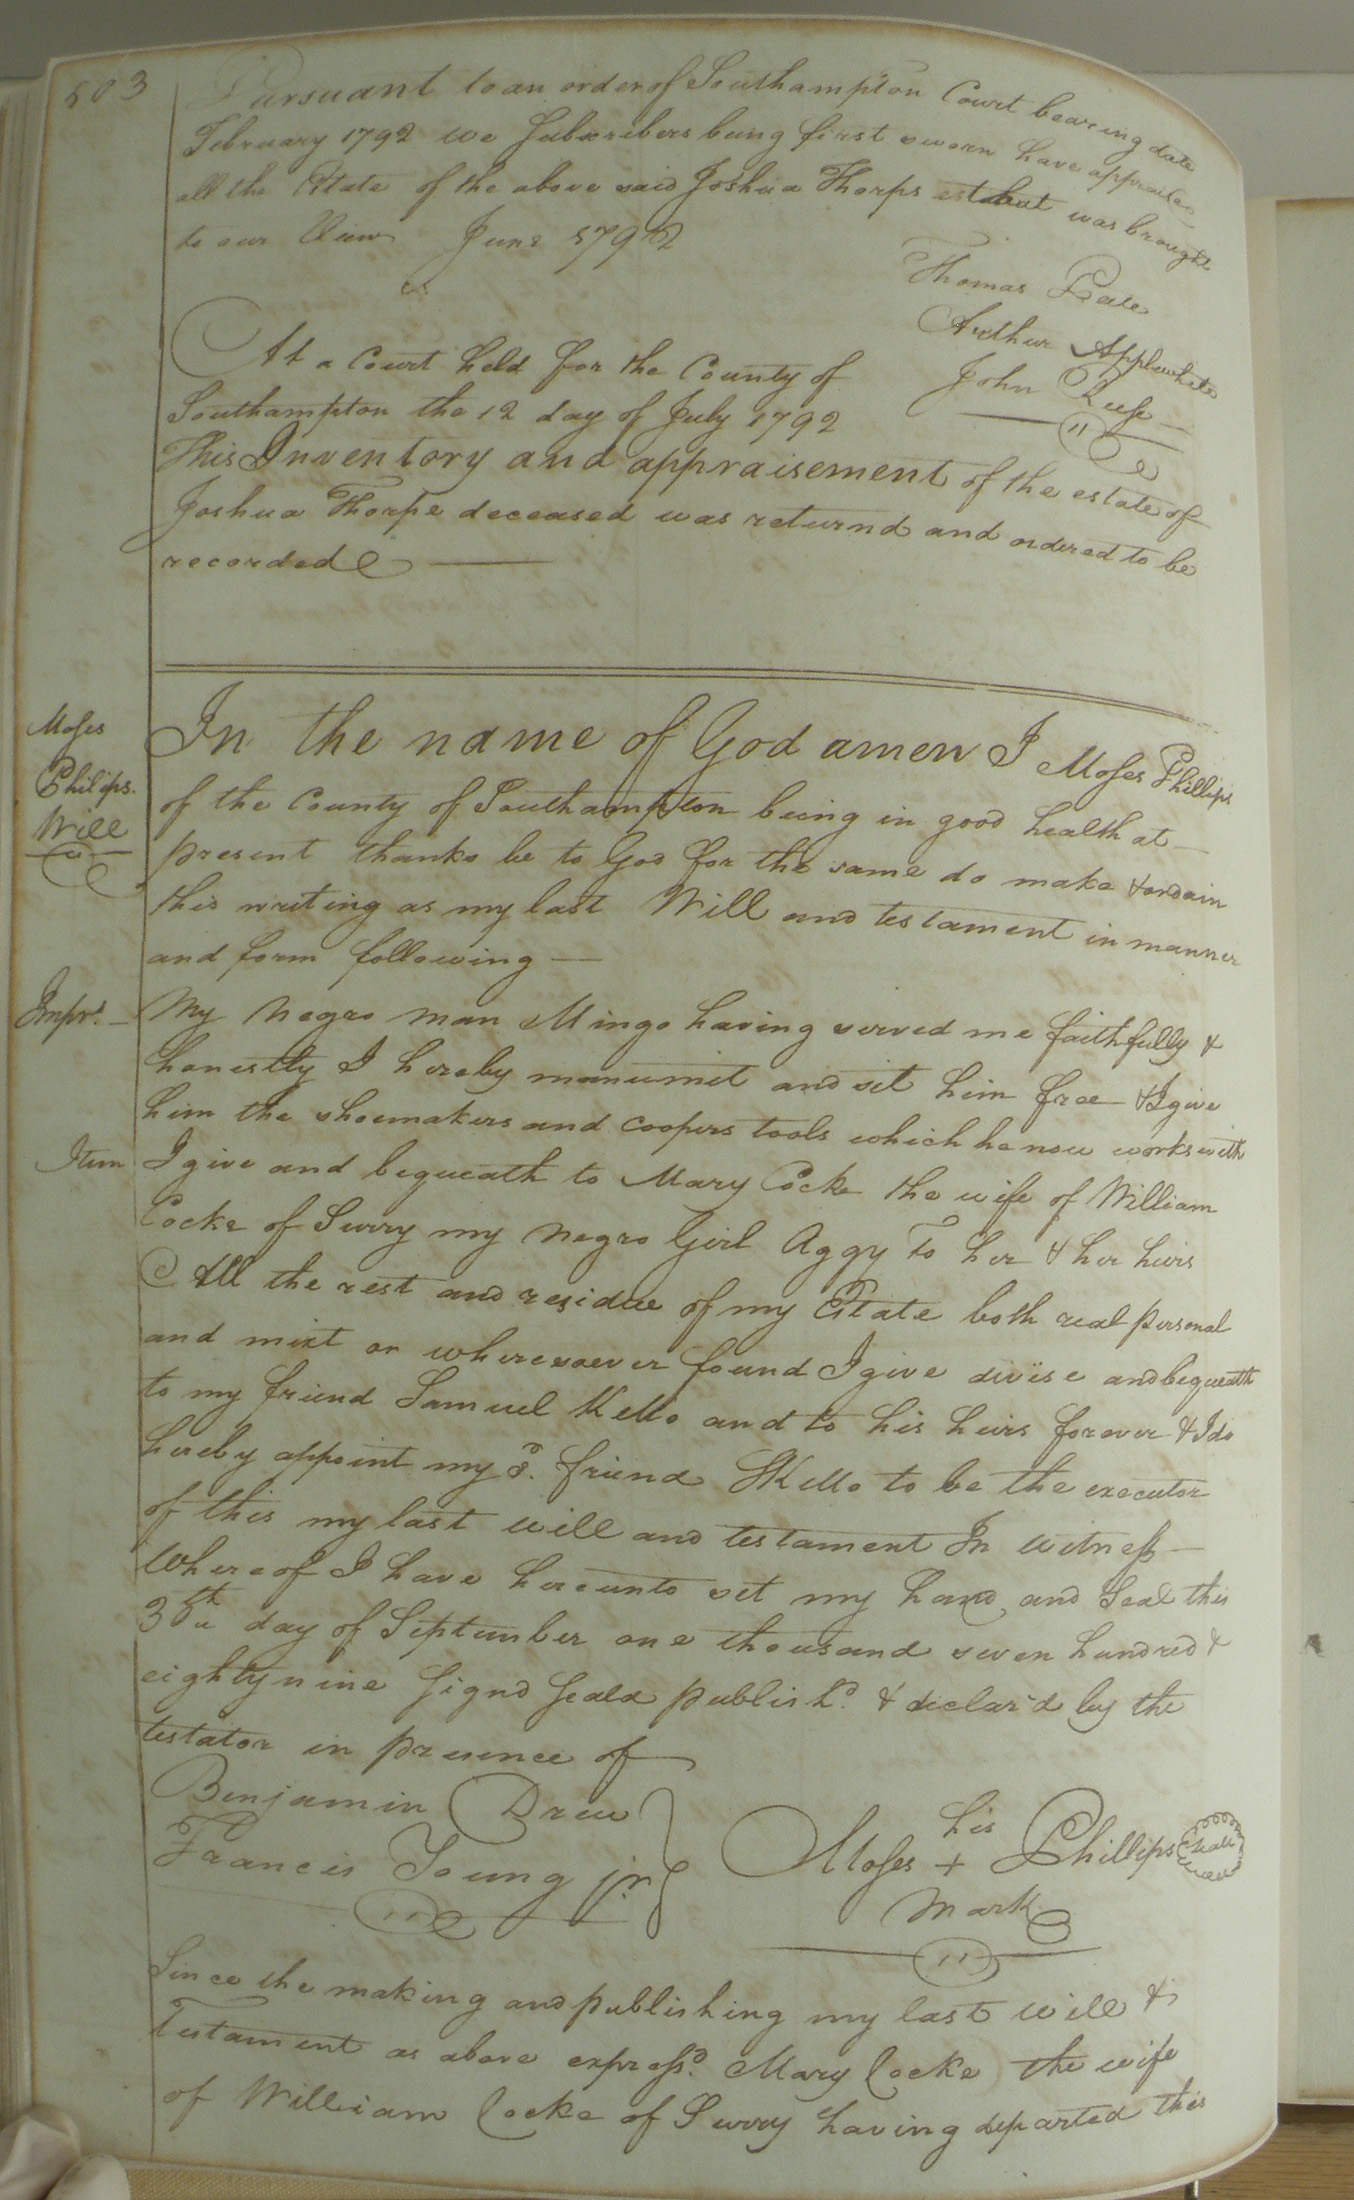 503
Pursuant to an order of Southampton Court bearing date
February 1792 we Subscribers being first sworn have appraised
all the Estate of the above said Joshua Thorps est that was brought
to our View June 1792
Thomas Peete
Arthur Applewhite
John Rees
At a Court held for the County of
Southampton the 12 day of July 1792
This Inventory and appraisement of the estate of
Joshua Thorpe deceased was returnd and ordered to be
recorded
Moses
Philips.
Will
In the name of God amen I Moses Phillips
of the County of Southampton being in good health at
present thanks be to God for the same do make & ordain
this writing as my last Will and testament in manner
and form following
Imprs. My Negro man Mingo having served me faithfully &
honestly I hereby manumit and set him free & I give
him the shoemakers and coopers tools which he now works with
Item I give and bequeath to Mary Cocke the wife of William
Cocke of Surry my Negro Girl Aggy To her & her heirs
All the rest and residue of my Estate both real personal
and mixt or wheresoever found I give devise and bequeath
to my friend Samuel Kello and to his heirs forever & I do
hereby appoint my sd. friend SKello to be the executor
of this my last will and testament In witness
Whereof I have hereunto set my hand and Seal this
day of September one thousand seven hundred &
eighty nine Signd Seald publishd. & declar'd by the
testator in presence of
Benjamin Drew
Francis Young jr.
his
Moses + Phillips Seal
mark
Since the making and publishing my last will &
Testament as above expressd. Mary Cocke the wife
of William Cocke of Surry having departed this